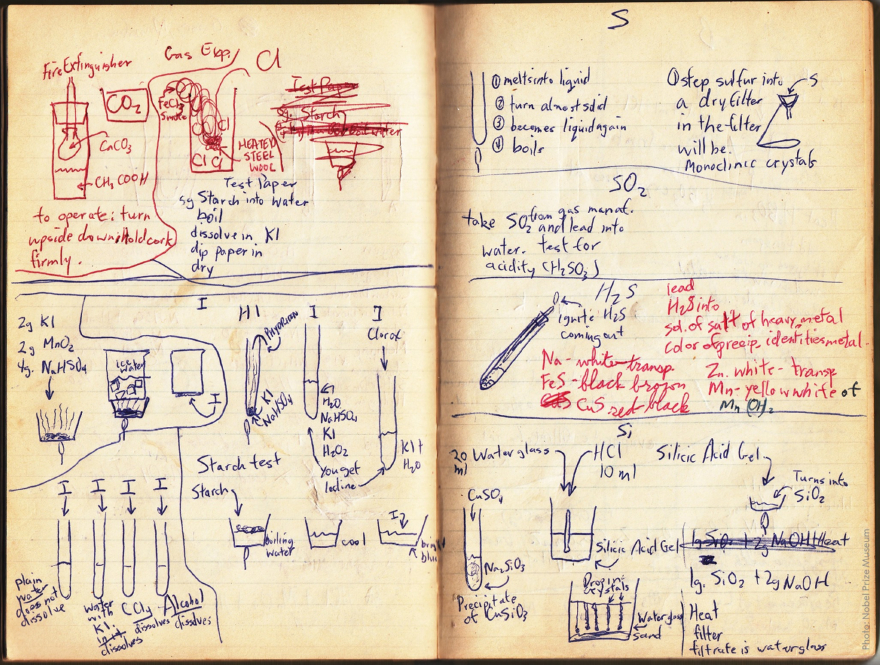 Fire Extinguisher
CO₂
CaCO₃
CH₃COOH
to operate: turn
upside down, hold cork
firmly.
Gas Exp.
Cl
FeCl₃
Smoke
Cl
Cl Cl
HEATED
STEEL
WOOL
Test Paper
Starch
Test Paper
5g Starch into water
boil
dissolve in KI
dip paper in
dry
I
2g KI
2g MnO₂
4g. NaHSO₄
Ice
Water
I
HI
KI
NaHSO₄
I
H₂O
NaHSO₄
KI
H₂O₂
you get
Iodine
I
Clorox
KI+
H₂O
Starch test
Starch
boiling
water
cool
I₂
I
I
I
I
plain
water
does not
dissolve
water
with
KI.
dissolves
CCl₄
dissolves
Alcohol
dissolves
S
① melts into liquid
② turn almost solid
③ becomes liquid again
④ boils
① step sulfur into
a dry filter
in the filter
will be.
Monoclinic crystals
S
SO₂
take SO₂ from gas manaf.
and lead into
water. test for
acidity (H₂SO₃)
H₂S
ignite H₂S
coming out
lead
H₂S into
sol. of salt of heavy metal
color of precip. identifies metal.
Na - white transp
FeS - black brown
CuS red black
Zn. white - transp
Mn - yellow white of
Mn(OH)₂
Si
20
ml
Waterglass
HCl
10 ml
Silicic Acid Gel
Turns into
SiO₂
CuSO₄
Na₂SiO₃
Precipitate
of CuSiO₃
Silicic Acid Gel
1g SiO₂ + 2g NaOH Heat
1g. SiO₂ + 2g NaOH
Drop in
crystals
Waterglass
sand
Heat
filter
filtrate is waterglass
Photo: Nobel Prize Museum